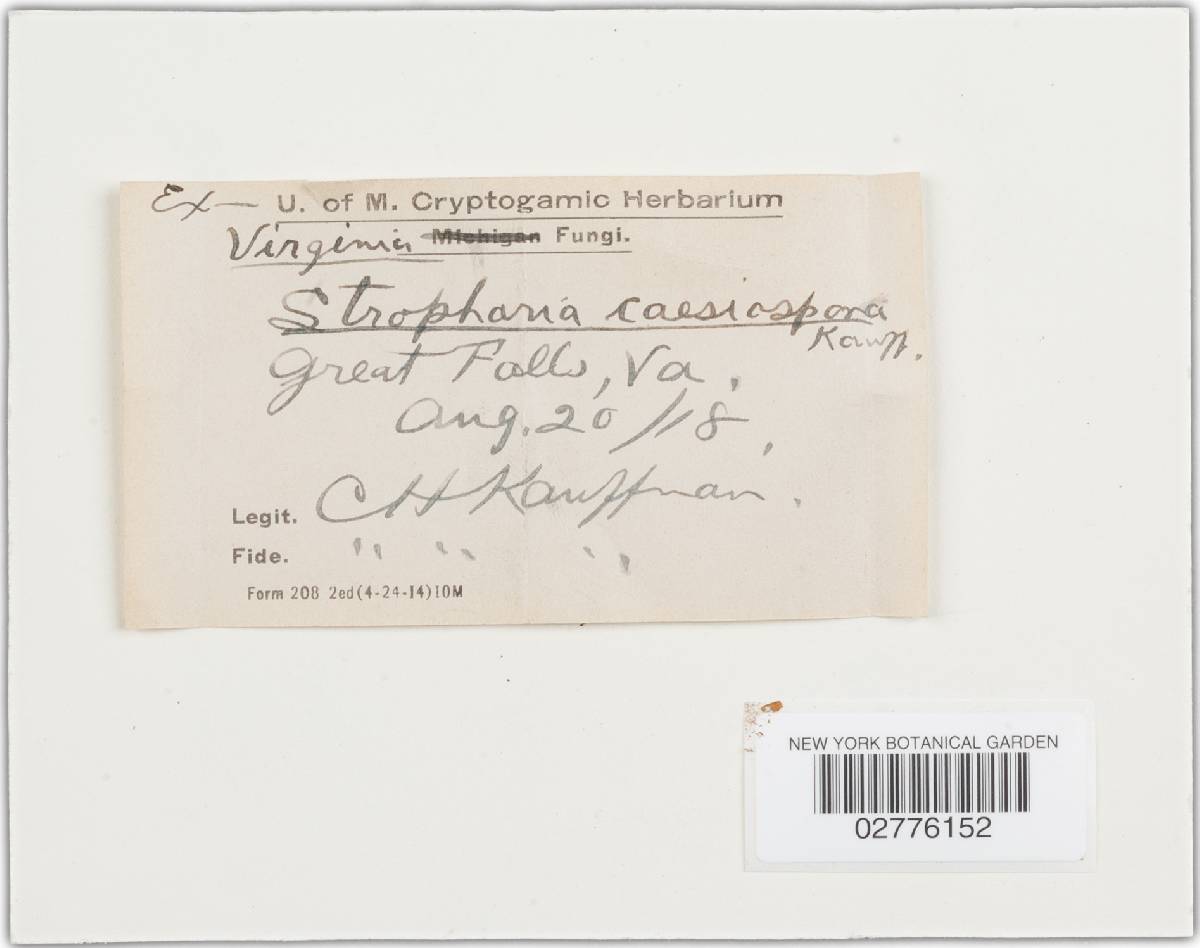 Ex— U. of M. Cryptogamic Herbarium
Virginia Michigan Fungi.
Stropharia caesiospora
Kauff.
Great Falls, Va.
Aug. 20/18,
Legit. CH Kauffman.
Fide. " " "
Form 208 2ed(4-24-14)10M
NEW YORK BOTANICAL GARDEN
02776152